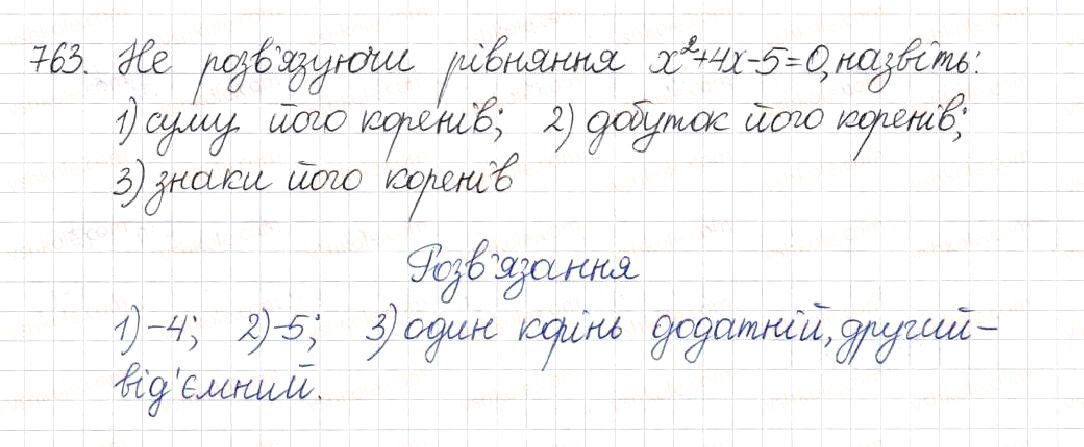 763. Не розв'язуючи рівняння x²+4x-5=0, назвіть:
1) суму його коренів; 2) добуток його коренів;
3) знаки його коренів
Розв'язання
1) -4; 2) -5; 3) один корінь додатній, другий -
від'ємний.